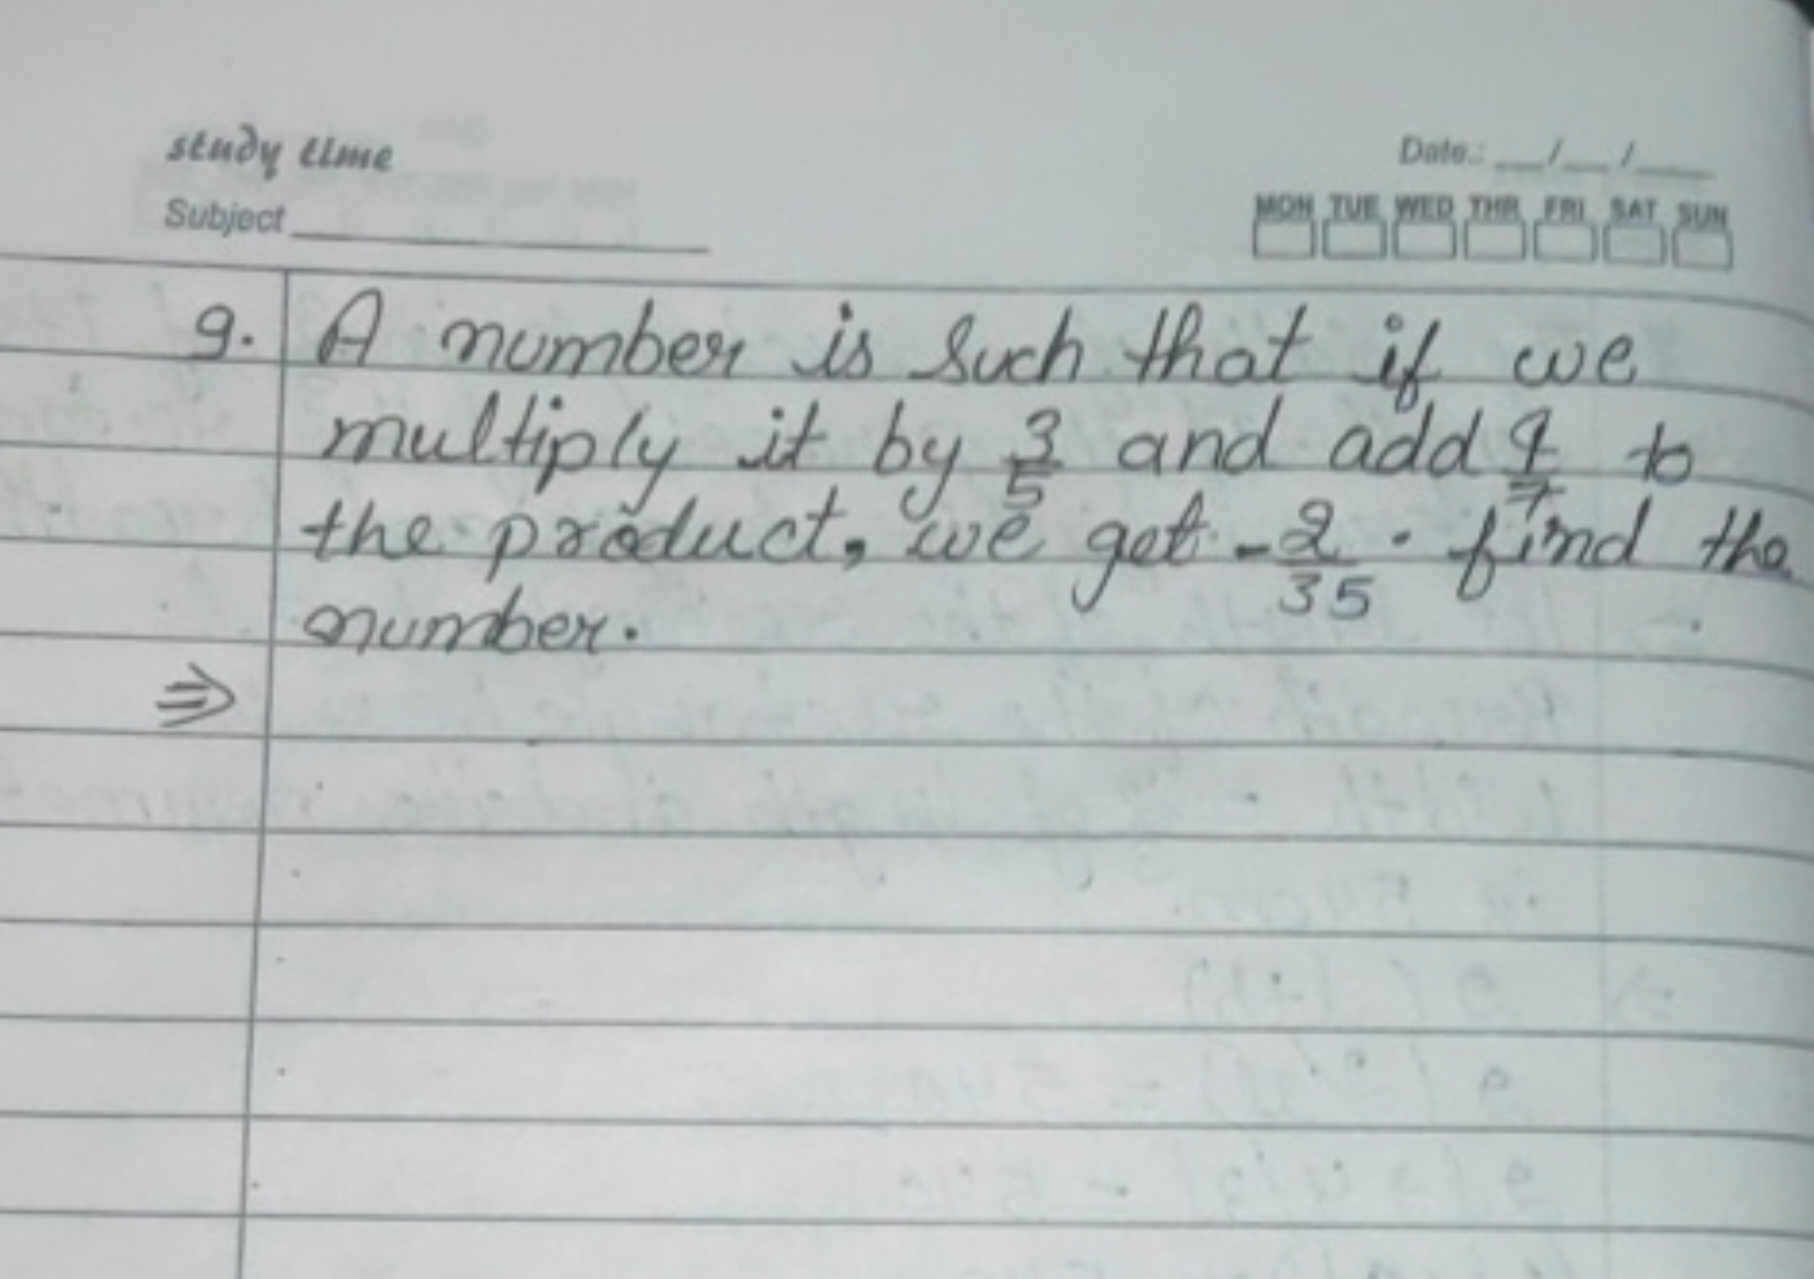 study time
Date.: __/__/____
Subject
MON TUE WED THR FRI SAT SUN
9. A number is such that if we
multiply it by 3/5 and add 4/7 to
the product, we get -2/35. find the
number.
⇒